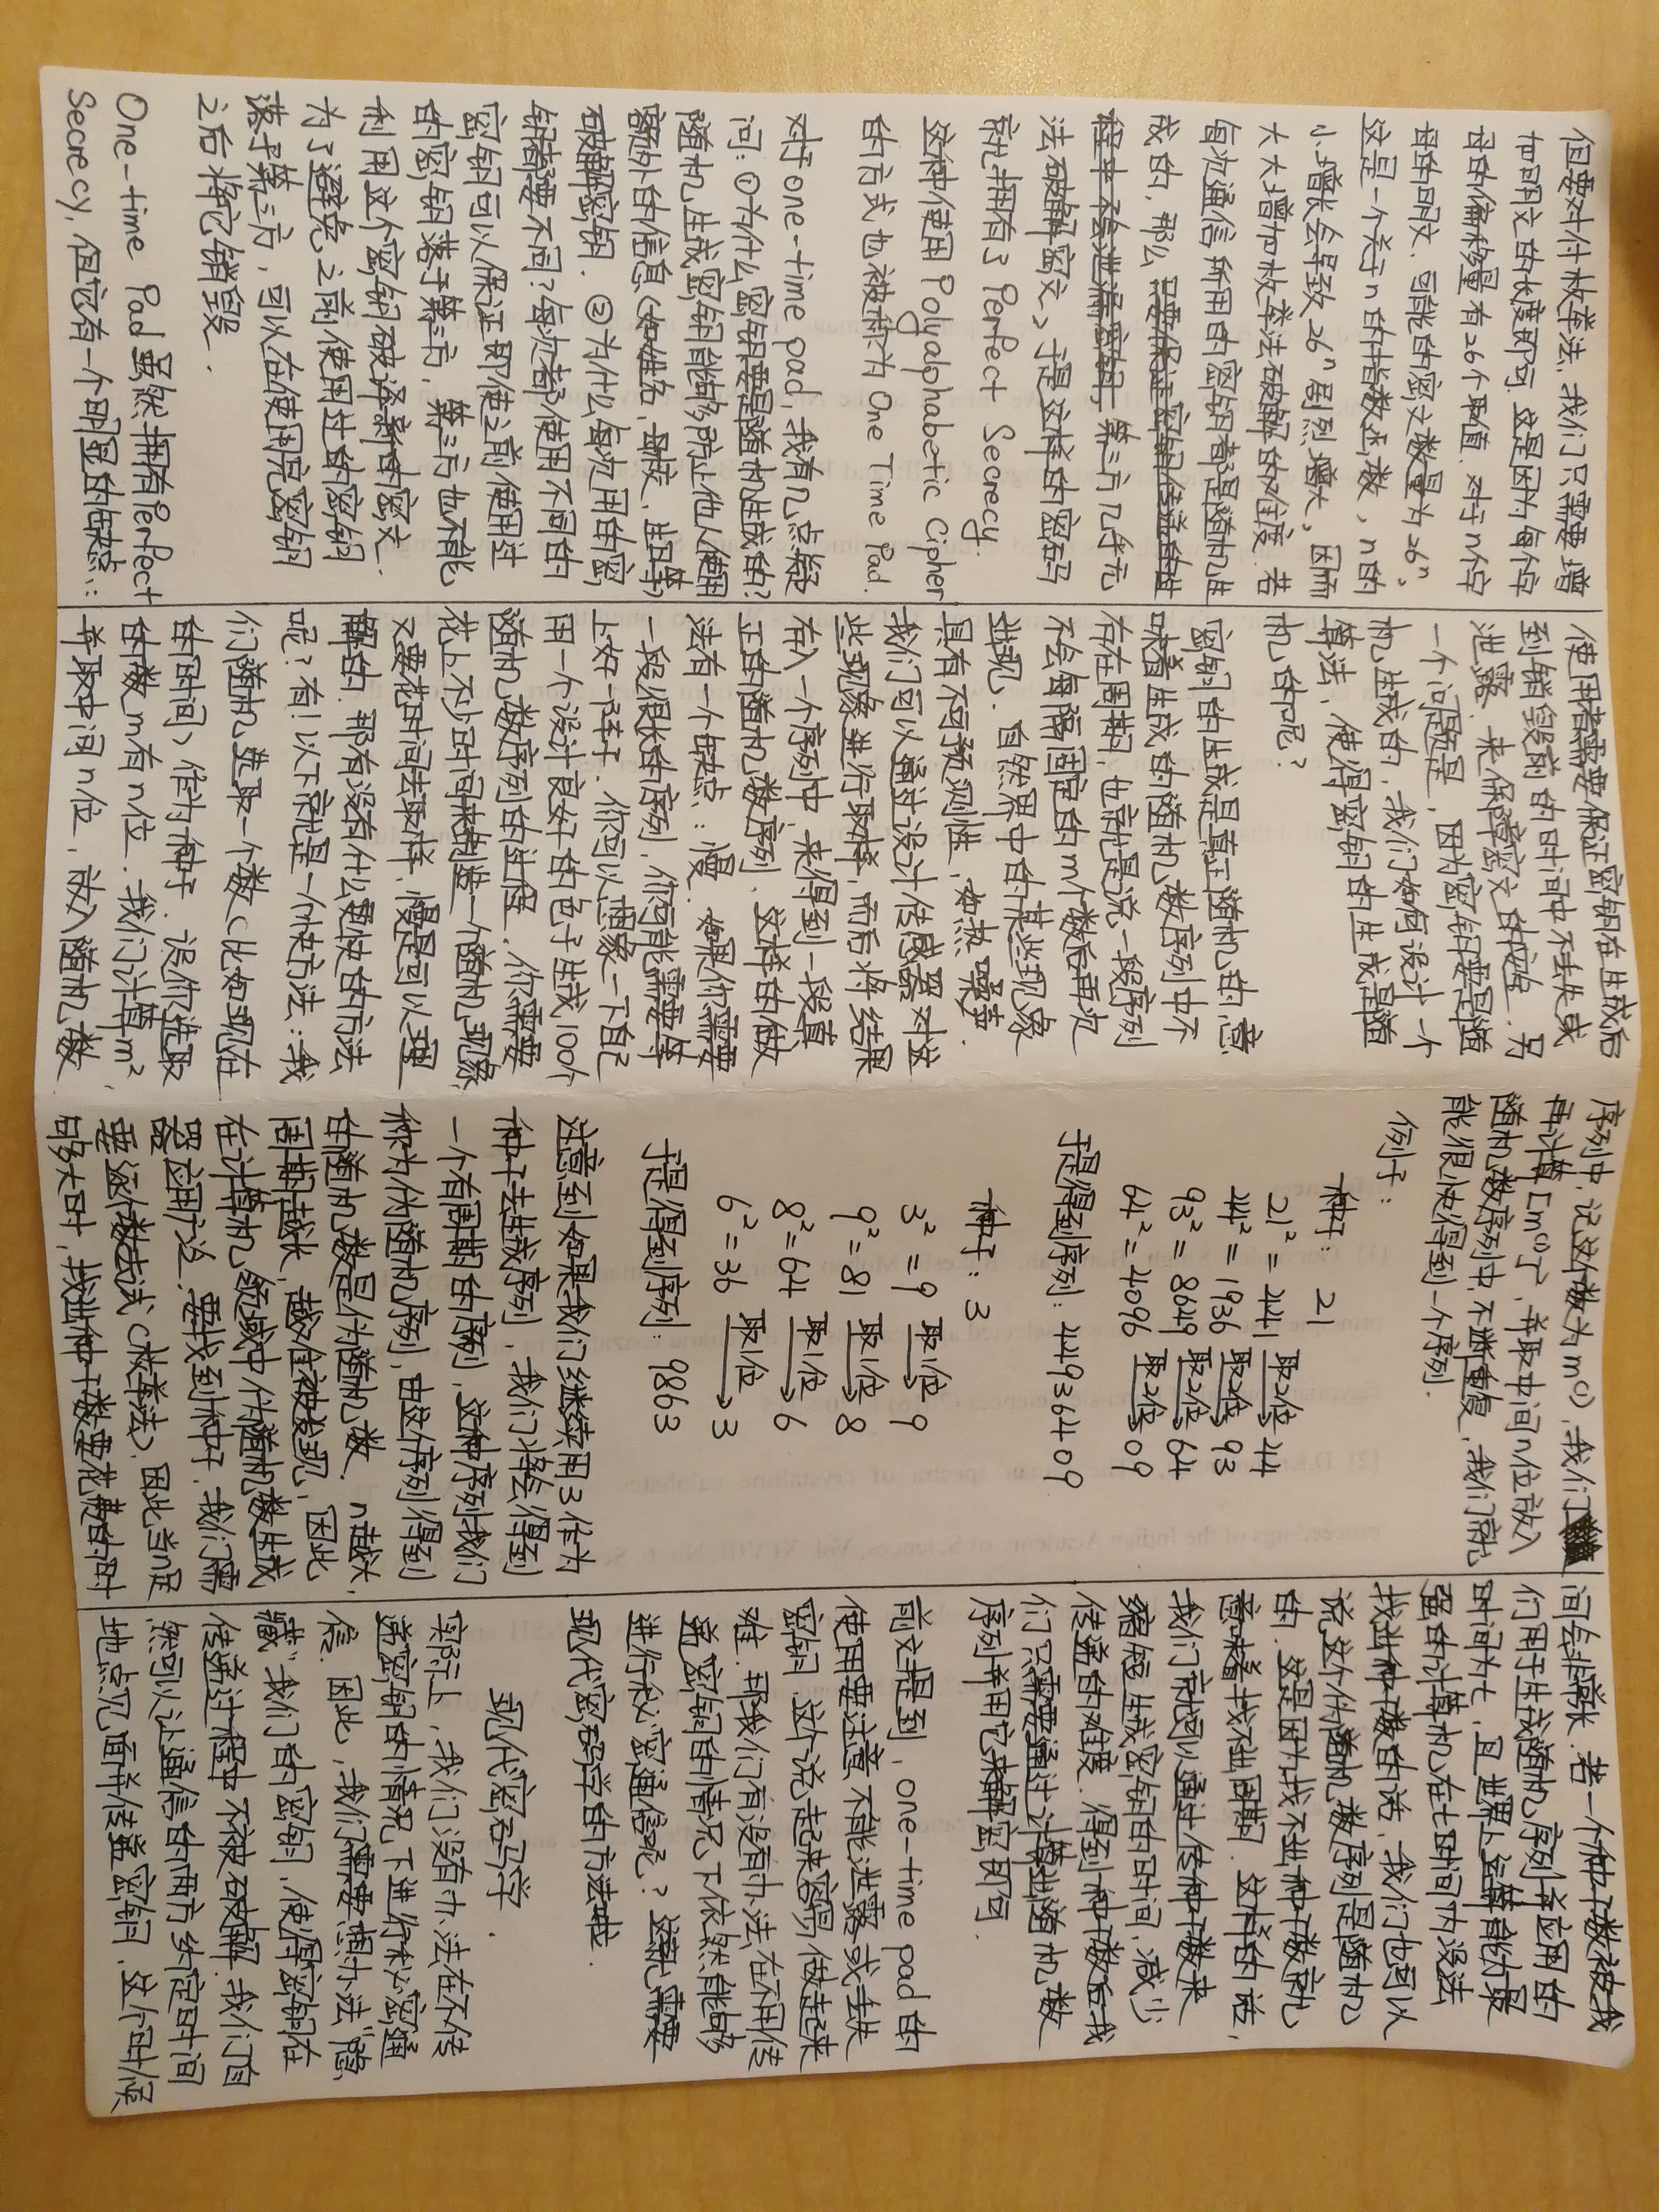 但要对付枚举法, 我们只需要增
加明文的长度即可. 这是因为每个字
母的偏移量有26个取值. 对于n个字
母的明文, 可能的密文数量为26ⁿ,
这是一个关于n的指数函数, n的
小增长会导致26ⁿ剧烈增大, 因而
大大增加枚举法破解的难度. 若
每次通信所用的密钥都是随机生
成的, 那么只要保证密钥传递的过
程中不会泄漏密钥, 第三方几乎无
法破解密文, 于是这样的密码
就拥有了 Perfect Secrecy.
这种使用 Polyalphabetic Cipher
的方式也被称为 One Time Pad.
对于one-time pad, 我有几点疑
问: ①为什么密钥要是随机生成的?
随机生成密钥能够防止他人使用
额外的信息(如姓名, 母校, 生日等)
破解密钥. ②为什么每次用的密
钥都要不同? 每次都使用不同的
密钥可以保证即使之前使用过
的密钥落于第三方, 第三方也不能
利用这个密钥破译新的密文.
为了避免之前使用过的密钥
落于第三方, 可以在使用完密钥
之后将它销毁.
One-time Pad 虽然拥有Perfect
Secrecy, 但它有一个明显的缺点:
使用者需要保证密钥在生成后
到销毁前的时间中不丢失或
泄露, 来保障密文的安全. 另
一个问题是, 因为密钥要是随
机生成的, 我们如何设计一个
算法, 使得密钥的生成是随
机的呢?
密钥的生成是真正随机的, 意
味着生成的随机数序列中不
存在周期, 也就是说一段序列
不会每隔固定的m个数后再次
出现. 自然界中的某些现象
具有不可预测性, 如热噪声.
我们可以通过设计传感器对这
些现象进行取样, 而后将结果
存入一个序列中, 来得到一段真
正的随机数序列. 这样的做
法有一个缺点: 慢. 如果你需要
一段很长的序列, 你可能需要等
上好一阵子. 你可以想象一下自己
用一个设计良好的色子生成100个
随机数序列的过程. 你需要
花上不少时间来制造一个随机现象,
又要花时间去取样, 慢是可以理
解的. 那有没有什么更快的方法
呢? 有! 以下就是一个快方法: 我
们随机选取一个数(比如现在
的时间) 作为种子. 设你选取
的数m有n位. 我们计算m²,
并取中间n位, 放入随机数
序列中, 记这个数为m⁽¹⁾, 我们
再计算[m⁽¹⁾]², 并取中间n位放入
随机数序列中, 不断重复, 我们就
能很快得到一个序列.
例子:
种子: 21
21² = 441 取2位→ 44
44² = 1936 取2位→ 93
93² = 8649 取2位→ 64
64² = 4096 取2位→ 09
于是得到序列: 44936409
种子: 3
3² = 9 取1位→ 9
9² = 81 取1位→ 8
8² = 64 取1位→ 6
6² = 36 取1位→ 3
于是得到序列: 9863
注意到如果我们继续用3作为
种子去生成序列, 我们将会得到
一个有周期的序列, 这种序列我们
称为伪随机序列, 由这个序列得到
的随机数是伪随机数. n越大,
周期越长, 越难被发现, 因此
在计算机领域中伪随机数生成
器应用广泛. 要找到种子, 我们需
要逐个数去试(枚举法), 因此当n足
够大时, 找出种子数要花费的时
间会非常长. 若一个种子数被我
们用于生成随机序列并应用的
时间为t, 且世界上运算能力最
强的计算机在t时间内没法
找出种子数的话, 我们也可以
说这个伪随机数序列是随机
的. 这是因为找不出种子数就
意味着找不出周期. 这样的话,
我们就可以通过传种子数来
缩短生成密钥的时间, 减少
传递的难度. 得到种子数后我
们只需要通过计算出随机数
序列并用它来解密即可.
前文提到, one-time pad 的
使用要注意不能泄露或丢失
密钥, 这个说起来容易做起来
难. 那我们有没有办法在不用传
递密钥的情况下依然能够
进行秘密通信呢? 这就需要
现代密码学的方法啦.
现代密码学.
实际上, 我们没有办法在不传
递密钥的情况下进行秘密通
信. 因此, 我们需要想办法"隐
藏"我们的密钥, 使得密钥在
传递过程中不被破解. 我们自
然可以让通信的两方约定时间
地点见面并传递密钥, 这个时候